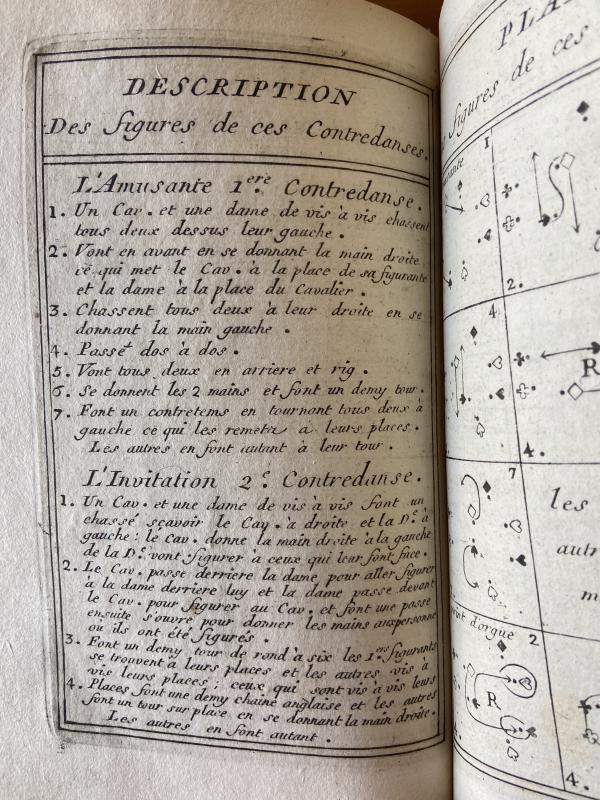 DESCRIPTION
Des figures de ces Contredanses.
L'Amusante 1.ere Contredanse.
1. Un Cav. et une dame de vis à vis chassent
tous deux dessus leur gauche.
2. Vont en avant en se donnant la main droite
ce qui met le Cav. à la place de sa figurante
et la dame à la place du Cavalier.
3. Chassent tous deux à leur droite en se
donnant la main gauche.
4. Passet dos à dos.
5. Vont tous deux en arriere et rig.
6. Se donnent les 2 mains et font un demy tour.
7. Font un contretems en tournant tous deux à
gauche ce qui les remet à leurs places.
Les autres en font autant à leur tour.
L'Invitation 2.e Contredanse.
1. Un Cav. et une dame de vis à vis font un
chassé sçavoir le Cav. à droite et la De. à
gauche: le cav. donne la main droite à la gauche
de la De. vont figurer à ceux qui leur font face.
2. Le Cav. passe derriere la dame pour aller figurer
à la dame derriere luy et la dame passe devant
le Cav. pour figurer au Cav. et font une passe
ensuite s'ouvre pour donner les mains aux personne
ou ils ont été figurés.
3. Font un demy tour de rond à six les 1.ers figurants
se trouvent à leurs places et les autres vis à
vis leurs places; ceux qui sont vis à vis leurs
4. Places font une demy chaine anglaise et les autres
font un tour sur place en se donnant la main droite.
Les autres en font autant.
PLA
figures de ces
1
2.
4
R
4.
7
les
autr
m
point d'orgue
2
R
4.